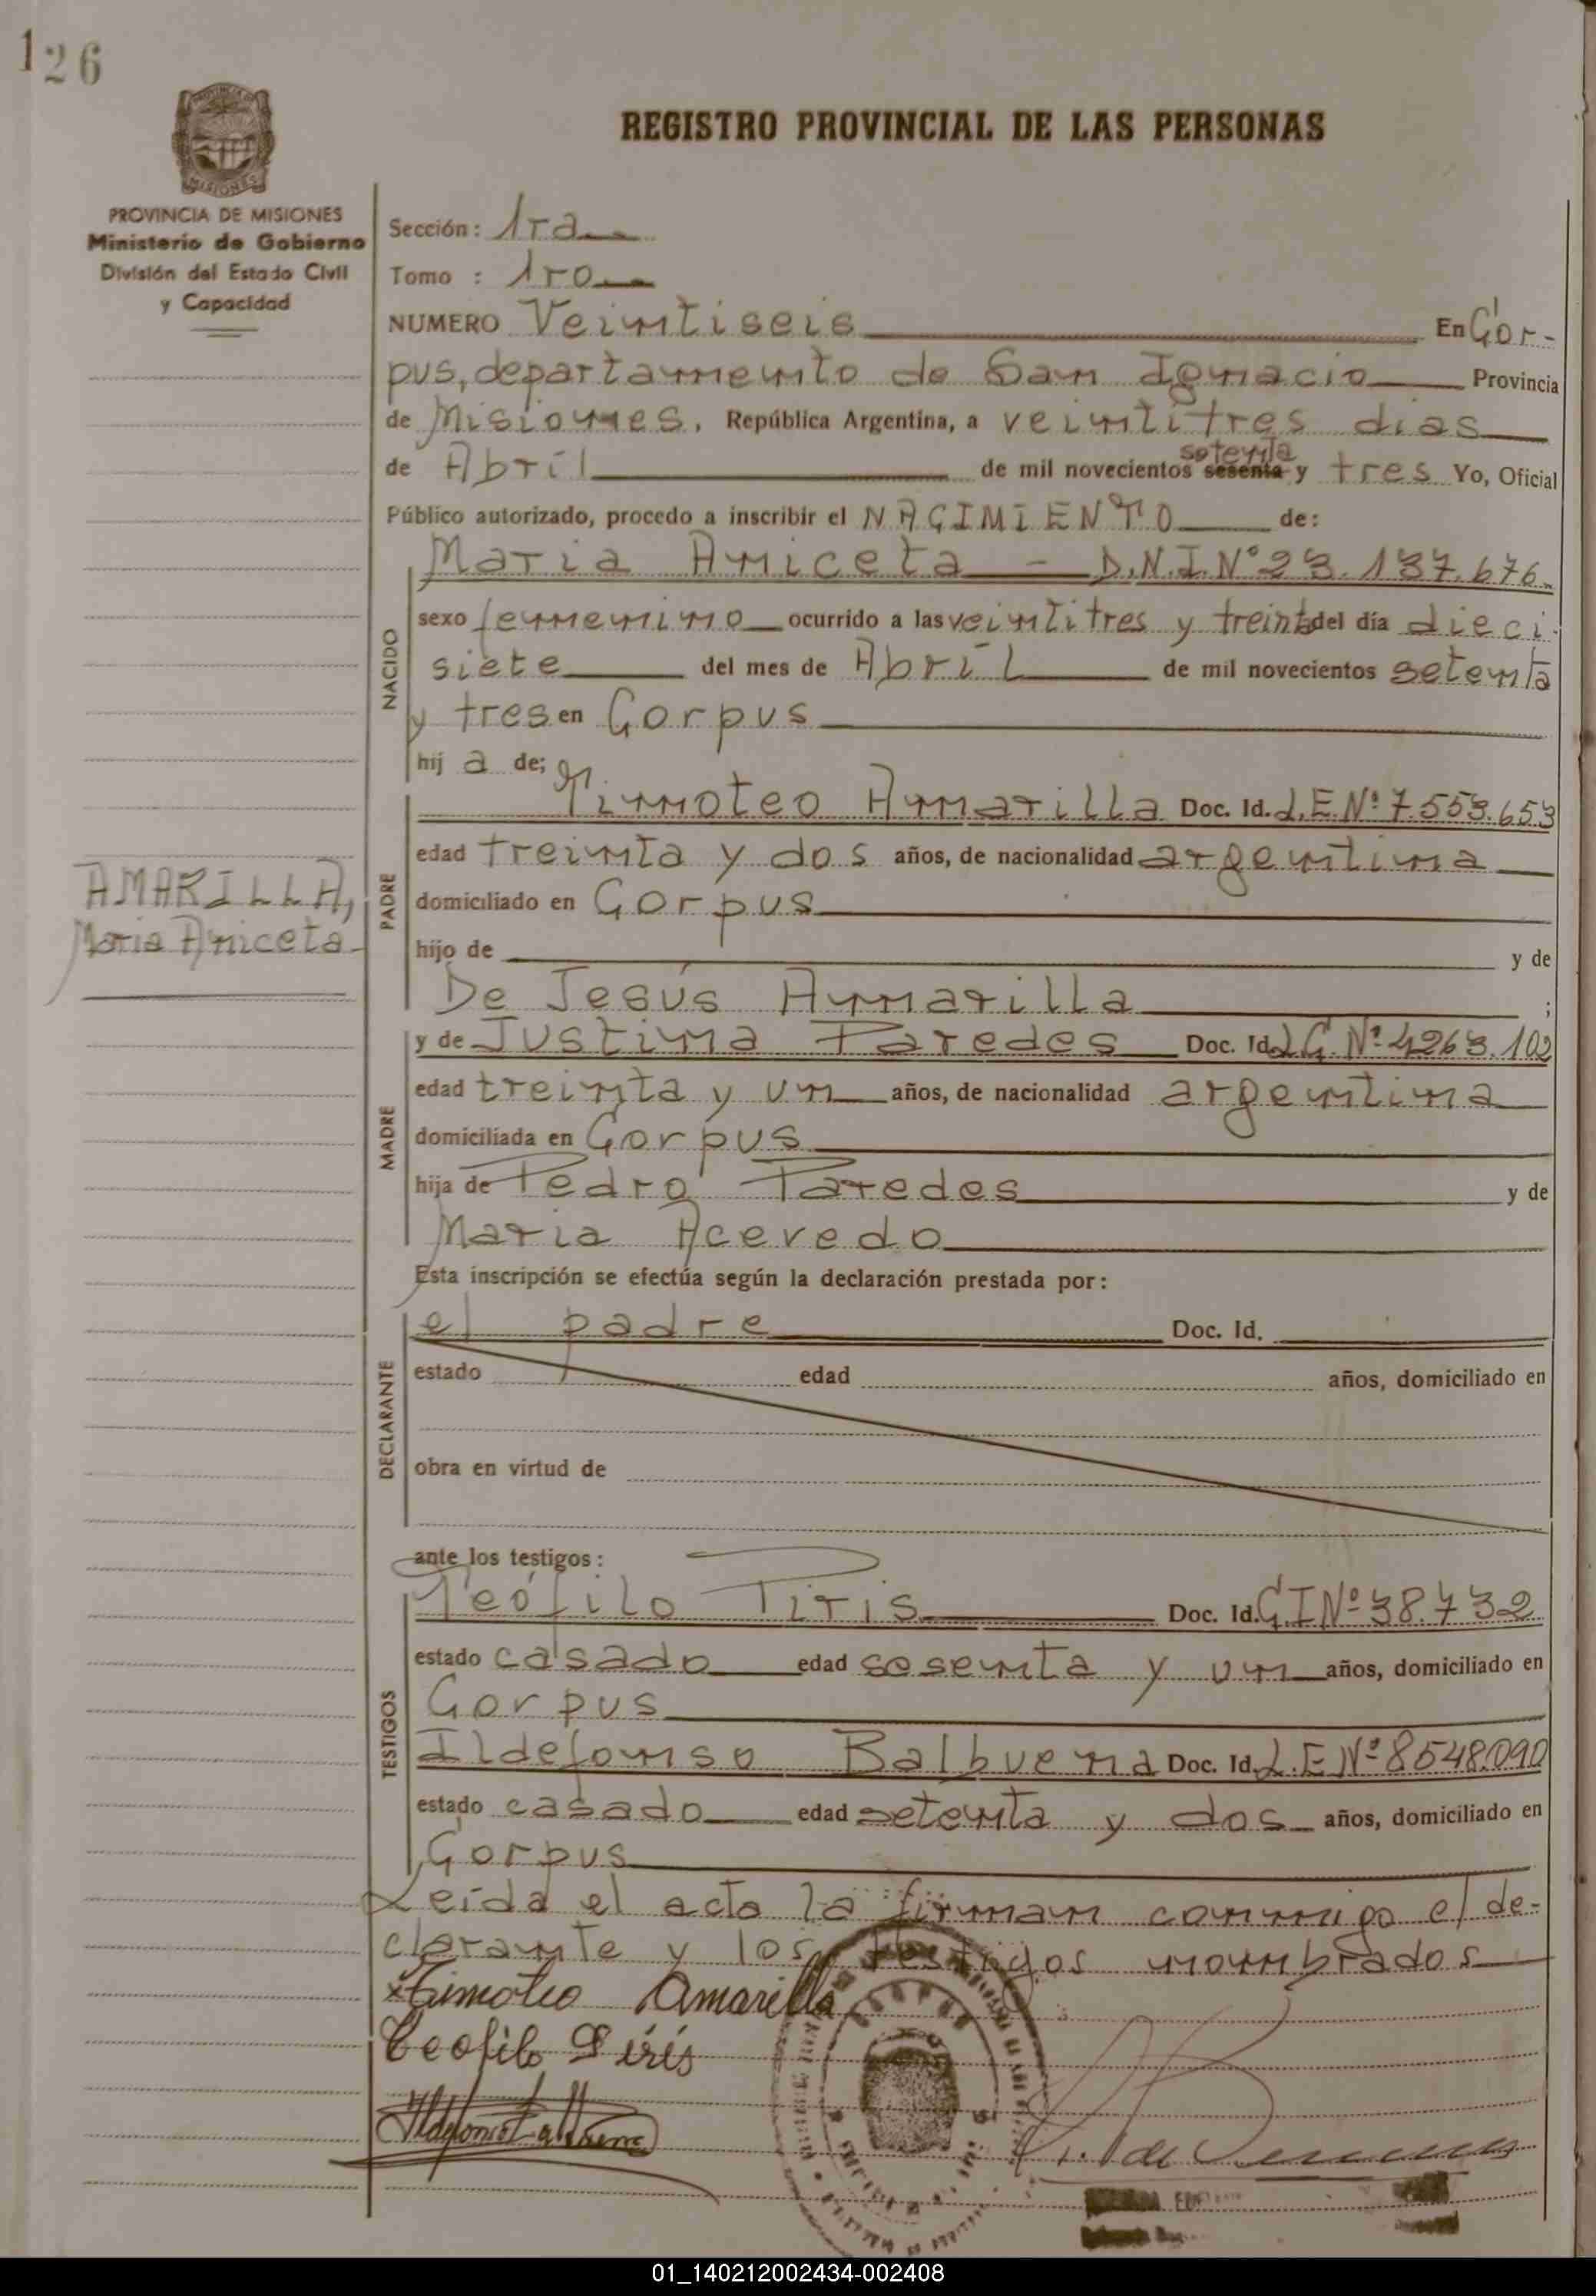 126
PROVINCIA DE MISIONES
Ministerio de Gobierno
División del Estado Civil
y Capacidad
REGISTRO PROVINCIAL DE LAS PERSONAS
Sección: 1ra
Tomo : 1ro
NUMERO Veintiseis En Cor-
pus, departamento de San Ignacio Provincia
de Misiones, República Argentina, a veintitres dias
setenta
de Abril de mil novecientos sesenta y tres Yo, Oficial
Público autorizado, procedo a inscribir el NACIMIENTO de:
NACIDO
Maria Aniceta - D.N.I.Nº 23.137.676
sexo femenino ocurrido a las veintitres y treinta del día dieci-
siete del mes de Abril de mil novecientos setenta
y tres en Corpus
hij a de;
PADRE
Timoteo Amarilla Doc. Id. L.E.Nº 7.553.653
edad treinta y dos años, de nacionalidad argentina
domiciliado en Corpus
hijo de y de
De Jesús Amarilla ;
AMARILLA,
Maria Aniceta
MADRE
y de Justina Paredes Doc. Id. L.C. Nº 4263.102
edad treinta y un años, de nacionalidad argentina
domiciliada en Corpus
hija de Pedro Paredes y de
Maria Acevedo
Esta inscripción se efectúa según la declaración prestada por:
DECLARANTE
el padre Doc. Id.
estado edad años, domiciliado en
obra en virtud de
ante los testigos:
TESTIGOS
Teófilo Piris Doc. Id. C.I Nº 38.732
estado casado edad sesenta y un años, domiciliado en
Corpus
Ildefonso Balbuena Doc. Id. L.E Nº 8548.090
estado casado edad setenta y dos años, domiciliado en
Corpus
Leida el acta la firman conmigo el de-
clarante y los testigos nombrados
x Timoteo Amarilla
Teofilo Piris
01_140212002434-002408